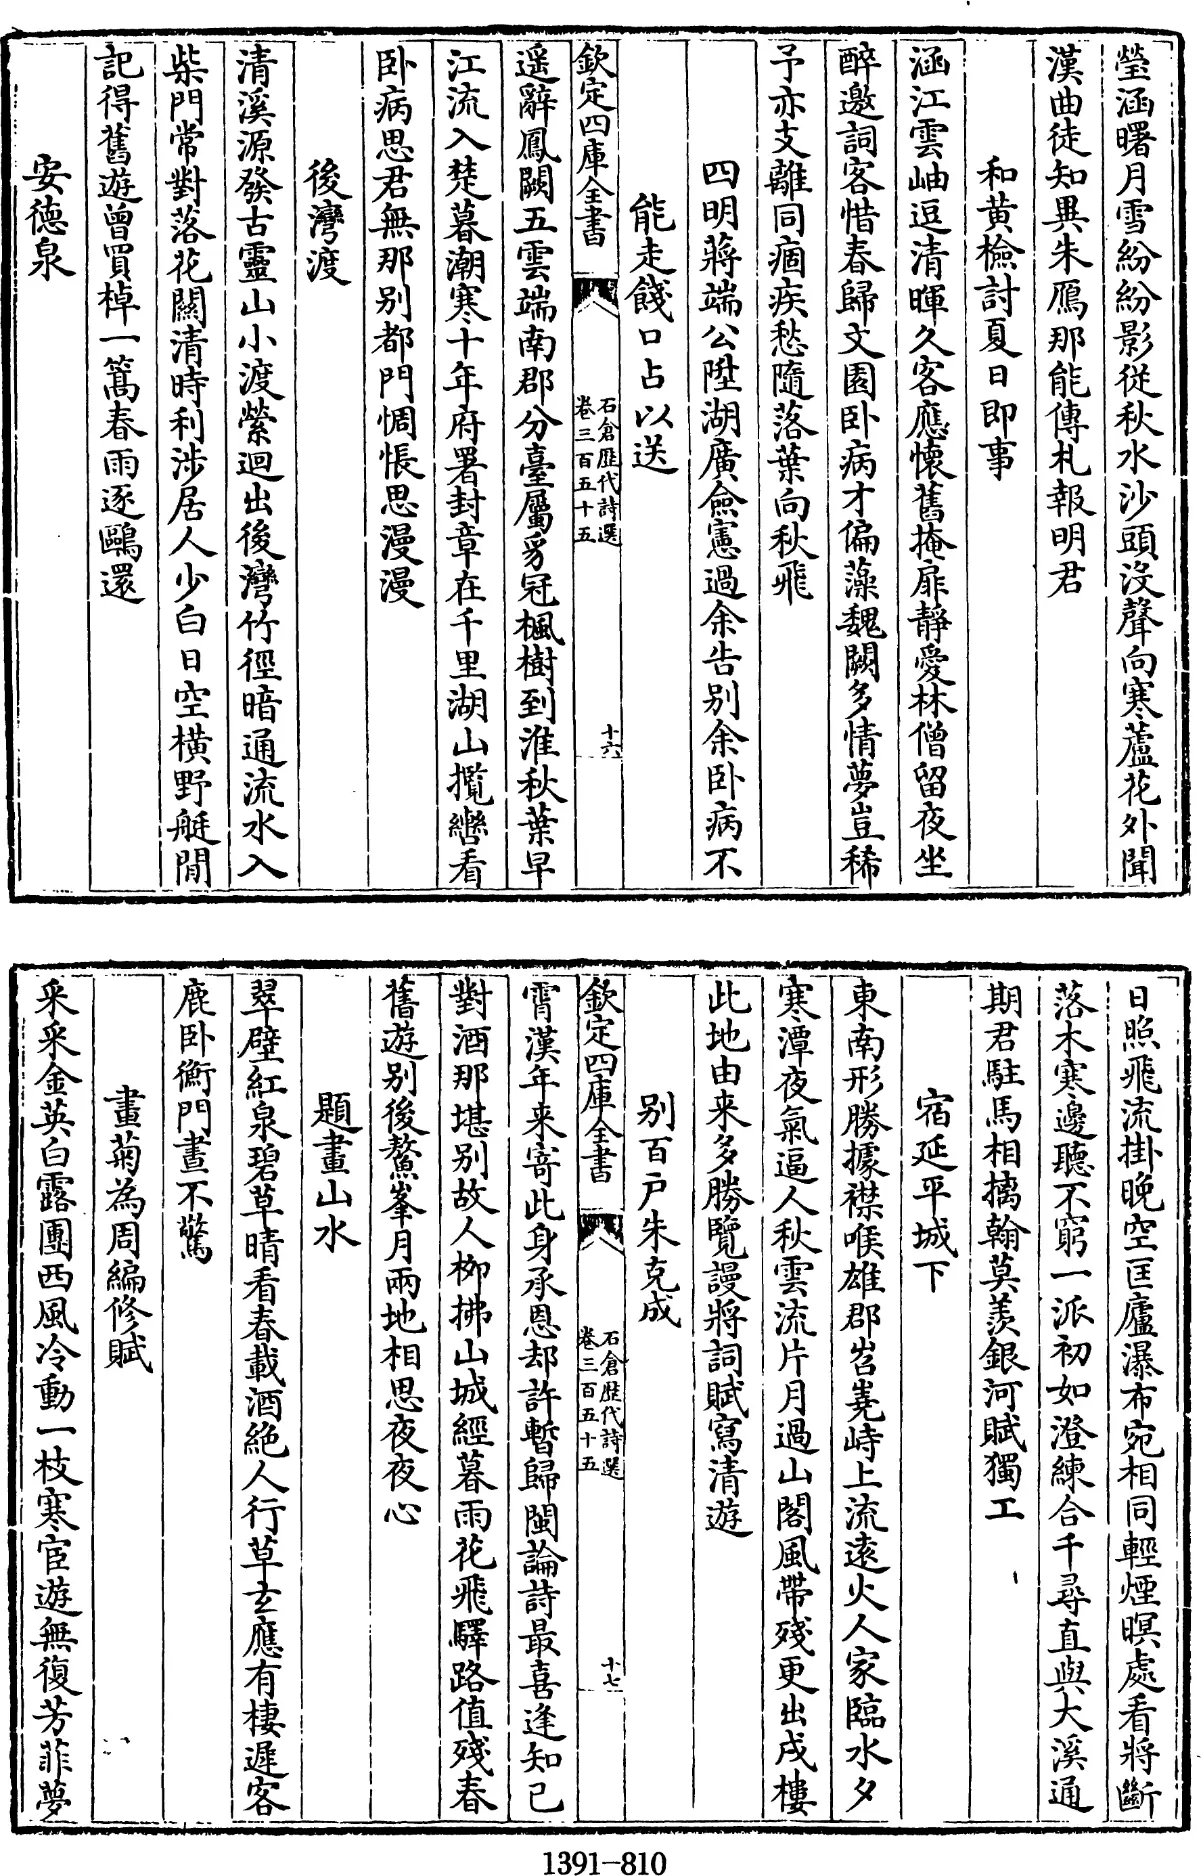 瑩涵曙月雪紛紛影從秋水沙頭沒聲向寒蘆花外聞
漢曲徒知異朱鴈那能傳札報明君
和黃檢討夏日即事
涵江雲岫逗清暉久客應懷舊掩扉靜愛林僧留夜坐
醉邀詞客惜春歸文園卧病才偏藻魏闕多情夢豈稀
予亦支離同痼疾愁隨落葉向秋飛
四明蔣端公陞湖廣僉憲過余告别余卧病不
能走餞口占以送
欽定四庫全書
石倉歷代詩選
卷三百五十五
十六
遥辭鳳闕五雲端南郡分臺屬豸冠楓樹到淮秋葉早
江流入楚暮潮寒十年府署封章在千里湖山攬轡看
卧病思君無那别都門惆悵思漫漫
後灣渡
清溪源發古靈山小渡縈迴出後灣竹徑暗通流水入
柴門常對落花關清時利涉居人少白日空横野艇閒
記得舊遊曾買棹一篙春雨逐鷗還
安德泉
日照飛流掛晚空匡廬瀑布宛相同輕煙暝處看將斷
落木寒邊聽不窮一派初如澄練合千尋直與大溪通
期君駐馬相摛翰莫羨銀河賦獨工
宿延平城下
東南形勝據襟喉雄郡岧嶤峙上流遠火人家臨水夕
寒潭夜氣逼人秋雲流片月過山閣風帶殘更出戍樓
此地由来多勝覽謾將詞賦寫清遊
别百戸朱克成
欽定四庫全書
石倉歷代詩選
卷三百五十五
十七
霄漢年来寄此身承恩却許暫歸閩論詩最喜逢知己
對酒那堪别故人柳拂山城經暮雨花飛驛路值殘春
舊遊别後鰲峯月兩地相思夜夜心
題畫山水
翠壁紅泉碧草晴看春載酒絶人行草玄應有棲遲客
鹿卧衡門晝不驚
畫菊為周編修賦
采采金英白露團西風冷動一枝寒宦遊無復芳菲夢
1391-810